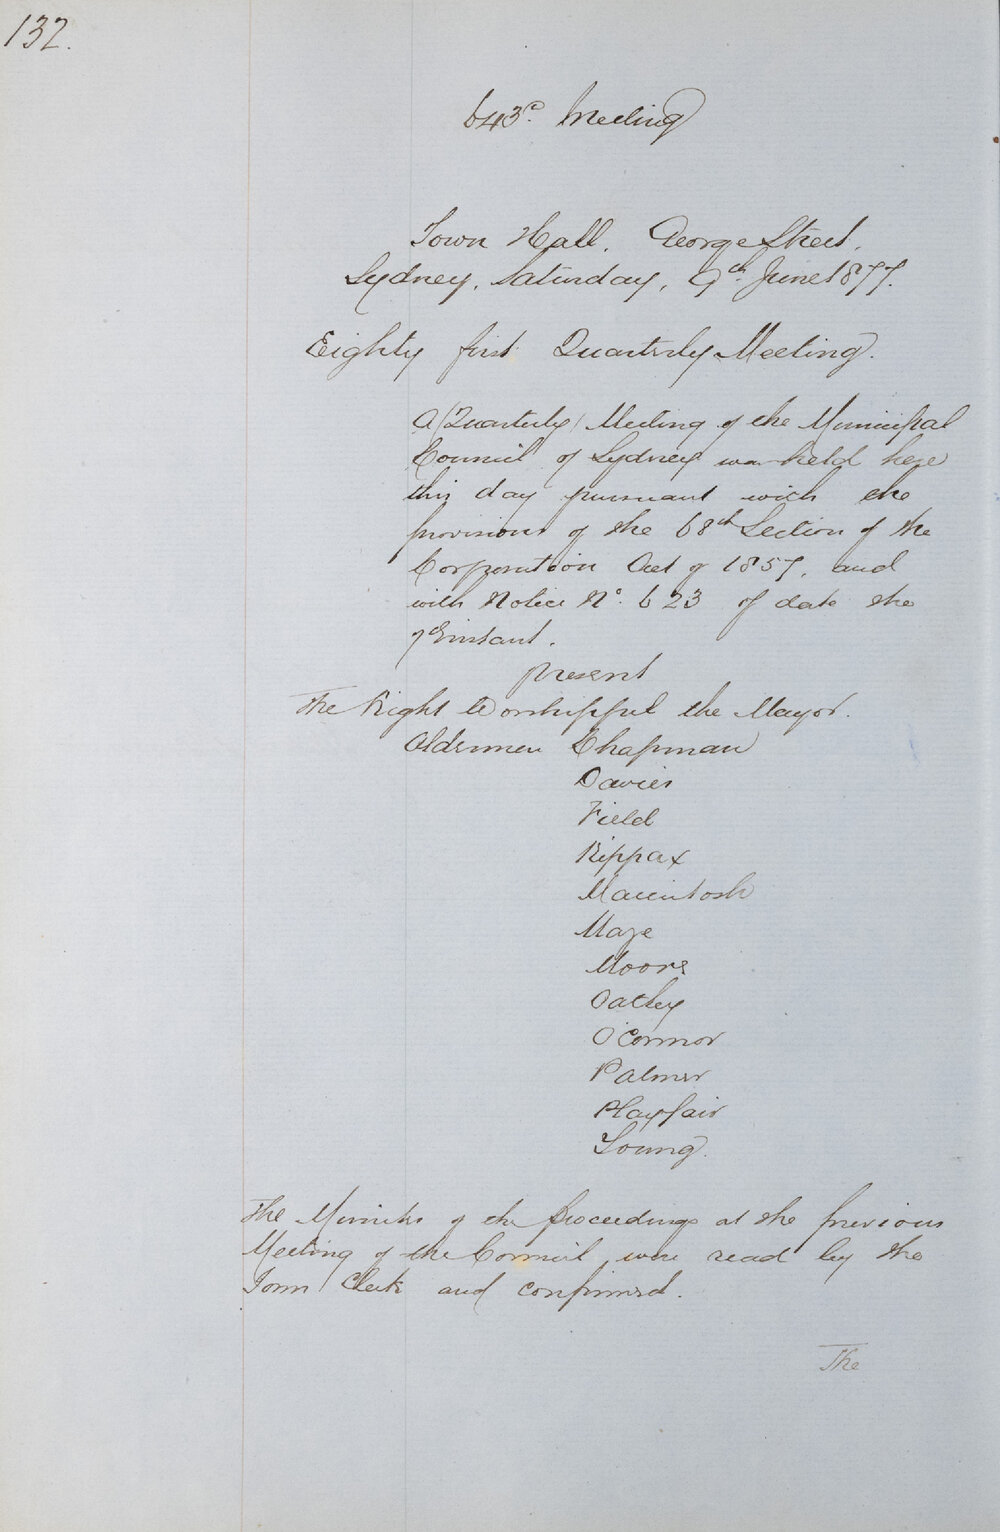 132.
643d. Meeting
Town Hall. George Street.
Sydney, Saturday, 9th June 1877.
Eighty first Quarterly Meeting.
A (Quarterly) Meeting of the Municipal
Council of Sydney was held here
this day pursuant with the
provisions of the 68th Section of the
Corporation Act of 1857, and
with Notice No. 623 of date the
instant.
present
The Right Worshipful the Mayor.
Aldermen Chapman
Davies
Field
Kippax
Macintosh
Maze
Moore
Oatley
O'Connor
Palmer
Playfair
Young.
The Minutes of the proceedings at the previous
Meeting of the Council were read by the
Town Clerk and confirmed.
The